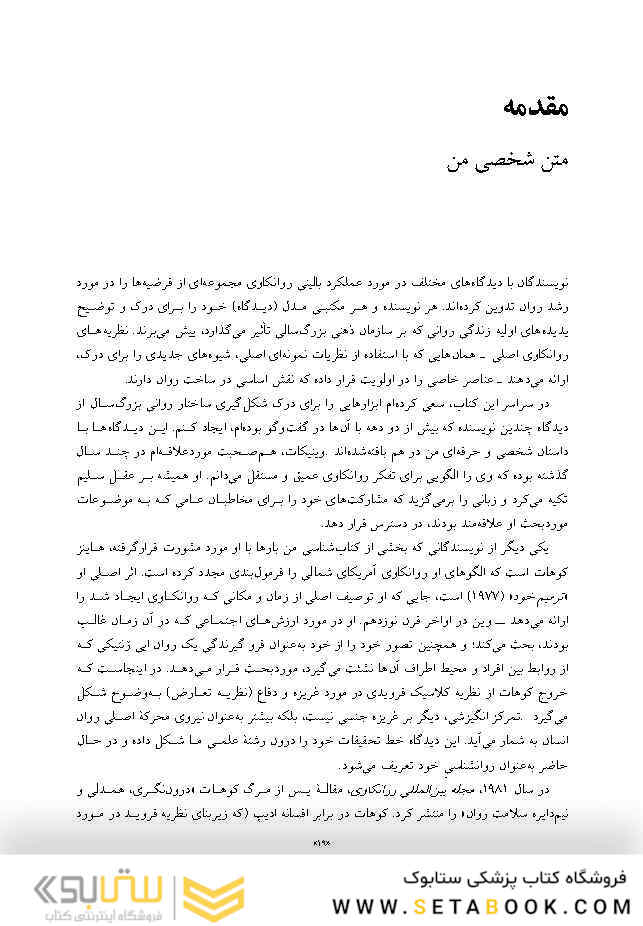 مقدمه
متن شخصی من
نویسندگان با دیدگاه‌های مختلف در مورد عملکرد بالینی روانکاوی مجموعه‌ای از فرضیه‌ها را در مورد
رشد روان تدوین کرده‌اند. هر نویسنده و هر مکتبـی مـدل (دیـدگاه) خـود را بـرای درک و توضـیح
پدیده‌های اولیه زندگی روانی که بر سازمان ذهنی بزرگ‌سالی تأثیر می‌گذارد، پیش می‌برند. نظریه‌هـای
روانکاوی اصلی ـ همان‌هایی که با استفاده از نظریات نمونه‌ای اصلی، شیوه‌های جدیدی را برای درک،
ارائه می‌دهند ـ عناصر خاصی را در اولویت قرار داده که نقش اساسی در ساخت روان دارند.
در سراسر این کتاب، سعی کرده‌ام ابزارهایی را برای درک شکل‌گیری ساختار روانی بزرگ‌سـال از
دیدگاه چندین نویسنده که بیش از دو دهه با آن‌ها در گفت‌وگو بوده‌ام، ایجاد کـنم. ایـن دیـدگاه‌هـا بـا
داستان شخصی و حرفه‌ای من در هم بافته‌شده‌اند. وینیکات، هـم‌صـحبت موردعلاقـه‌ام در چنـد سـال
گذشته بوده که وی را الگویی برای تفکر روانکاوی عمیق و مستقل می‌دانم. او همیشه بـر عقـل سـلیم
تکیه می‌کرد و زبانی را برمی‌گزید که مشارکت‌های خود را بـرای مخاطبـان عـامی کـه بـه موضـوعات
موردبحث او علاقه‌مند بودند، در دسترس قرار دهد.
یکی دیگر از نویسندگانی که بخشی از کتاب‌شناسی من بارها با او مورد مشورت قرارگرفته، هـاینز
کوهات است که الگوهای او روانکاوی آمریکای شمالی را فرمول‌بندی مجدد کرده است. اثر اصـلی او
«ترمیم‌خود» (۱۹۷۷) است، جایی که او توصیف اصلی از زمان و مکانی کـه روانکـاوی ایجـاد شـد را
ارائه می‌دهد ـ وین در اواخر قرن نوزدهم. او در مورد ارزش‌هـای اجتمـاعی کـه در آن زمـان غالـب
بودند، بحث می‌کند؛ و همچنین تصور خود را از خود به‌عنوان فرو گیرندگی یک روان ابی ژنتیکی کـه
از روابط بین افراد و محیط اطراف آن‌ها نشئت می‌گیرد، موردبحـث قـرار مـی‌دهـد. در اینجاسـت کـه
خروج کوهات از نظریه کلاسیک فرویدی در مورد غریزه و دفاع (نظریـه تعـارض) بـه‌وضـوح شـکل
می‌گیرد. تمرکز انگیزشی، دیگر بر غریزه جنسی نیست، بلکه بیشتر به‌عنوان نیروی محرکهٔ اصـلی روان
انسان به شمار می‌آید. این دیدگاه خط تحقیقات خود را درون رشتهٔ علمـی مـا شـکل داده و در حـال
حاضر به‌عنوان روانشناسی خود تعریف می‌شود.
در سال ۱۹۸۱، مجله بین‌المللی روانکاوی، مقالـهٔ پـس از مـرگ کوهـات «درون‌نگـری، همـدلی و
نیم‌دایره سلامت روان» را منتشر کرد. کوهات در برابر افسانه ادیپ (که زیربنای نظریه فرویـد در مـورد
«۱۹»
فروشگاه کتاب پزشکی ستابوک
WWW.SETABOOK.COM
ستابوک
فروشگاه اینترنتی کتاب